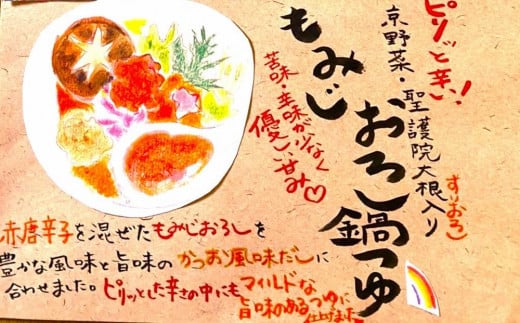 ピリッと辛い!
京野菜・聖護院大根入り
すりおろし
もみじ
おろし鍋つゆ
苦味・辛味が少なく
優しい甘み♡
赤唐辛子を混ぜたもみじおろしを
豊かな風味と旨味のかつお風味だしに
合わせました。ピリッとした辛さの中にもマイルドな
旨味のあるつゆに
仕上げました